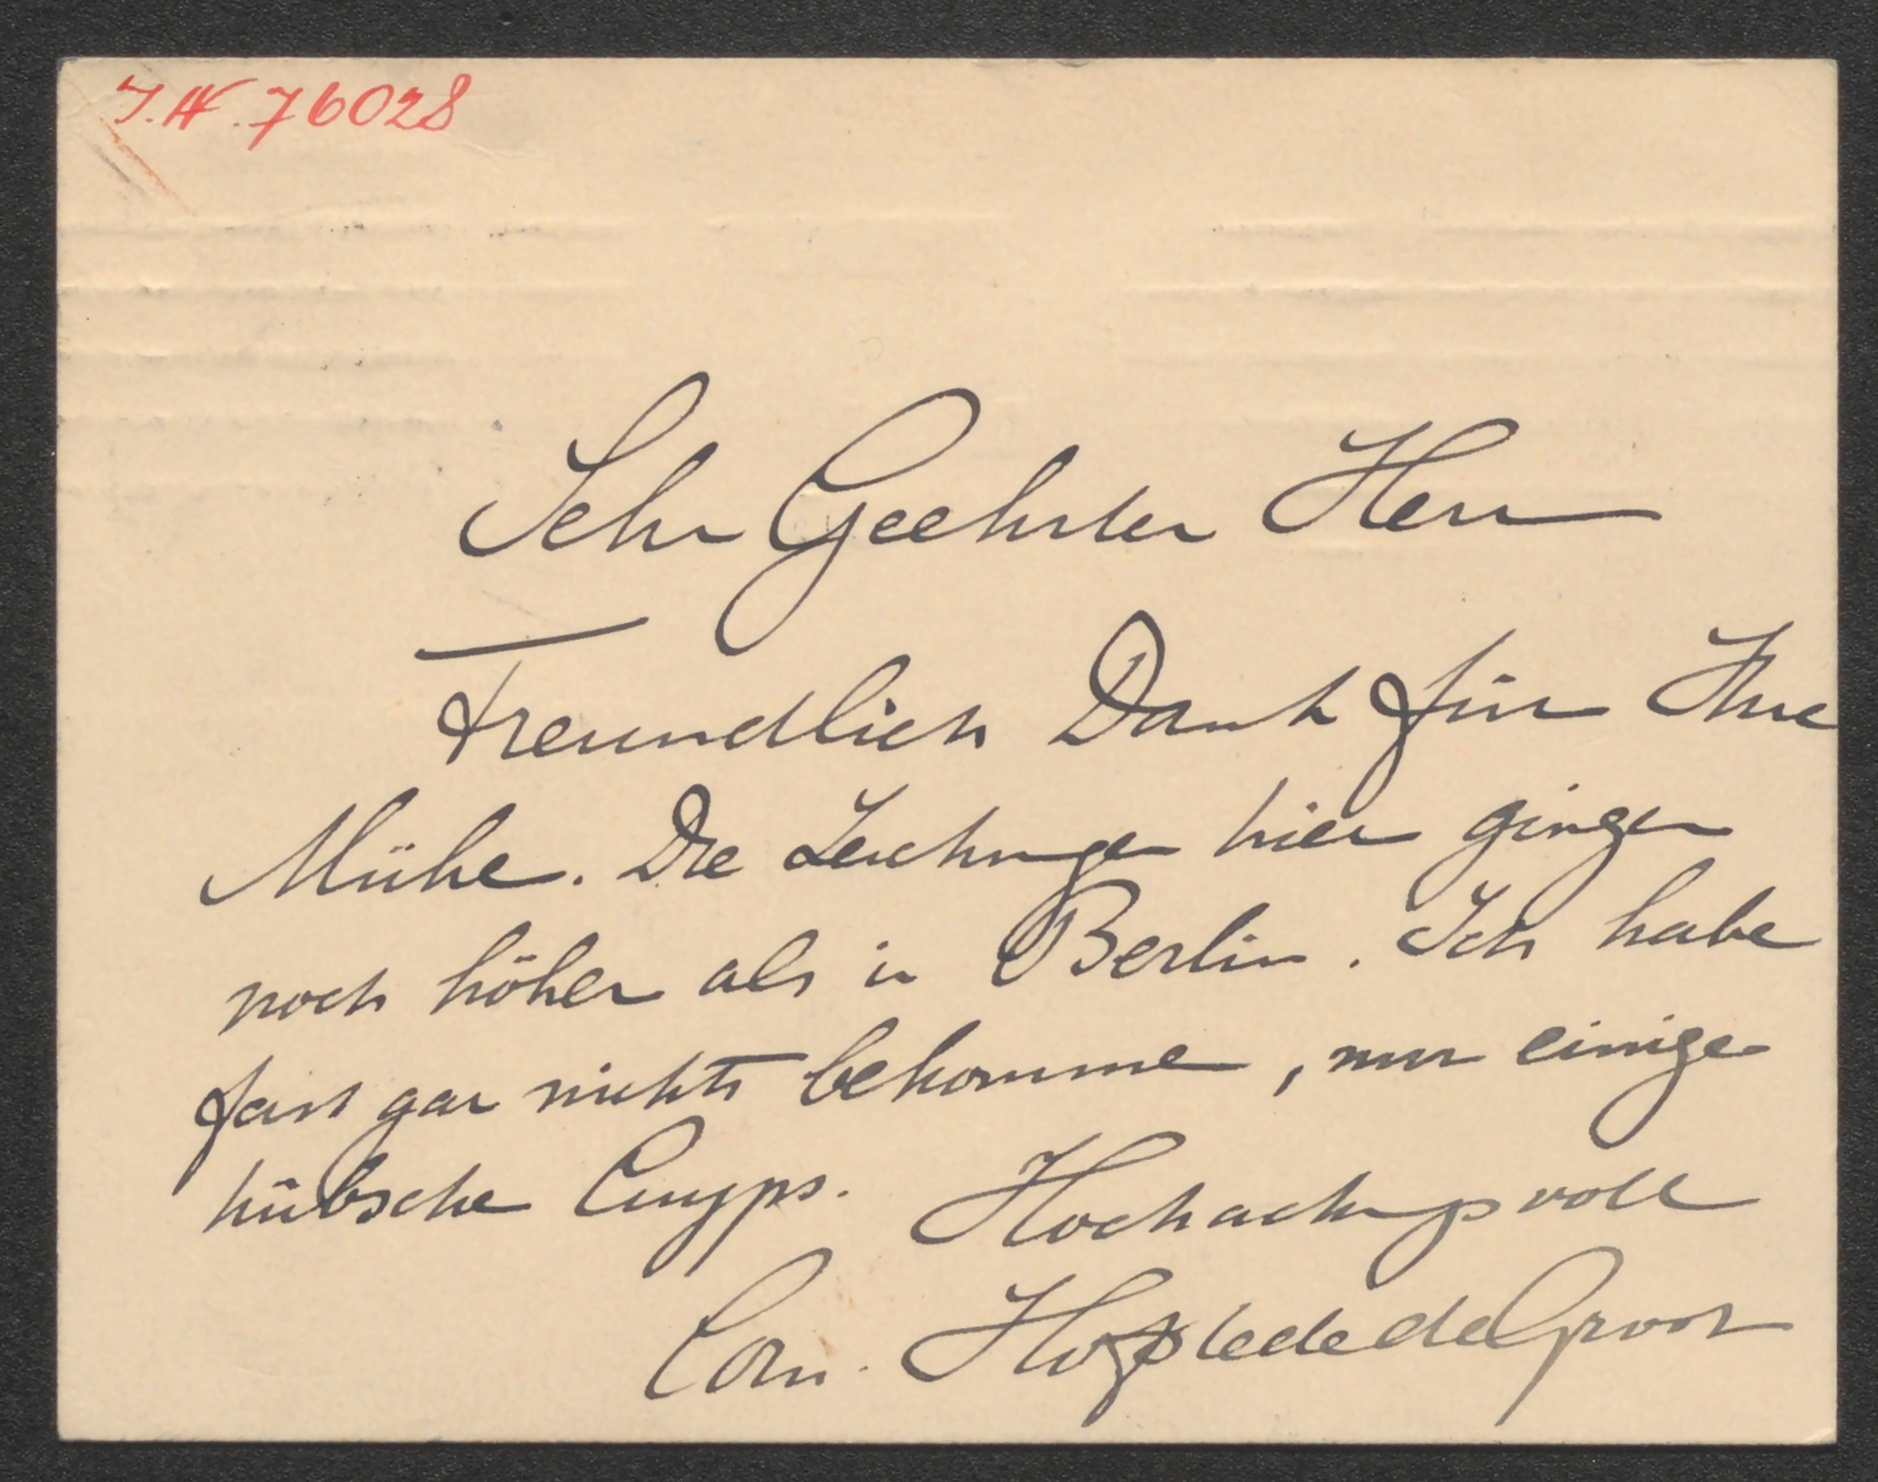 I.N. 76028
Sehr Geehrter Herr
Freundlich Dank für Ihre
Mühe. Die Zeichnungen hier gingen
noch höher als in Berlin. Ich habe
fast gar nichts bekommen, nur einige
hübsche Cuyps. Hochachtungsvoll
Corn. Hofstede de Groot